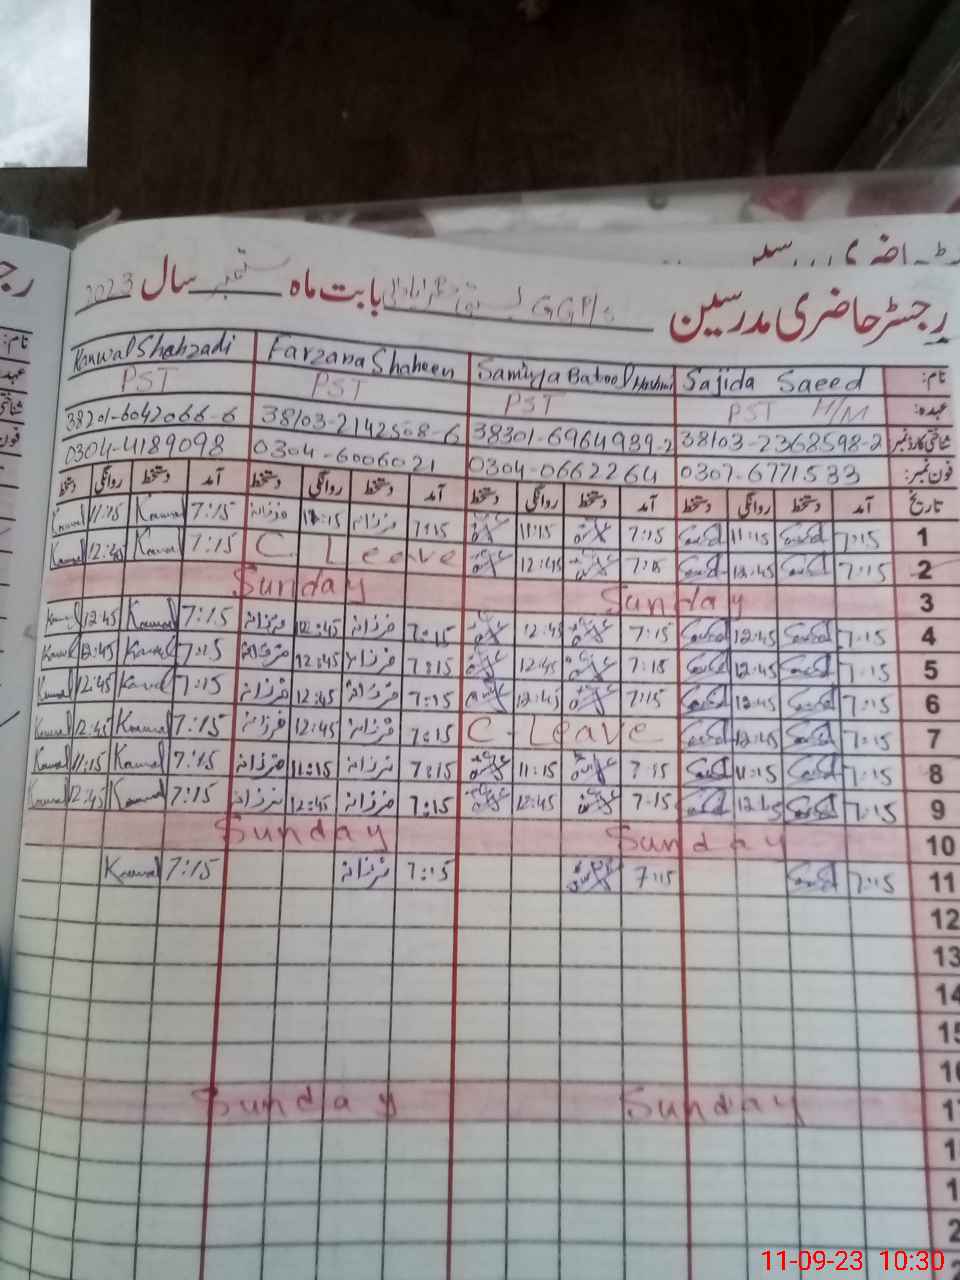 رجسٹر حاضری مدرسین GGP/s بابت ماہ ستمبر سال 2023
نام: Sajida Saeed Samiyya Batool Hashmi Farzana Shaheen Kanwal Shahzadi
عہدہ: PST H/M PST PST PST
شناختی کارڈ نمبر 38103-2368598-2 38301-6964939-2 38103-2142508-6 38201-6042066-6
فون نمبر: 0307-6771533 0304-0662264 0304-6006021 0304-4189098
تاریخ آمد دستخط روانگی دستخط آمد دستخط روانگی دستخط آمد دستخط روانگی دستخط آمد دستخط روانگی دستخط
1 7:15 Saeed 11:15 Saeed 7:15 11:15 7:15 فرزانہ 11:15 فرزانہ 7:15 Kanwal 11:15 Kanwal
2 7:15 Saeed 12:45 Saeed 7:15 12:45 C. Leave 7:15 Kanwal 12:45 Kanwal
3 Sunday Sunday
4 7:15 Saeed 12:45 Saeed 7:15 12:45 7:15 فرزانہ 12:45 فرزانہ 7:15 Kanwal 12:45 Kanwal
5 7:15 Saeed 12:45 Saeed 7:15 12:45 7:15 فرزانہ 12:45 فرزانہ 7:15 Kanwal 12:45 Kanwal
6 7:15 Saeed 12:45 Saeed 7:15 12:45 7:15 فرزانہ 12:45 فرزانہ 7:15 Kanwal 12:45 Kanwal
7 7:15 Saeed 12:45 Saeed C-Leave 7:15 فرزانہ 12:45 فرزانہ 7:15 Kanwal 12:45 Kanwal
8 7:15 Saeed 11:15 Saeed 7:15 11:15 7:15 فرزانہ 11:15 فرزانہ 7:15 Kanwal 11:15 Kanwal
9 7:15 Saeed 12:45 Saeed 7:15 12:45 7:15 فرزانہ 12:45 فرزانہ 7:15 Kanwal 12:45 Kanwal
10 Sunday Sunday
11 7:15 Saeed 7:15 7:15 فرزانہ 7:15 Kanwal
12
13
14
15
16
17 Sunday Sunday
11-09-23 10:30